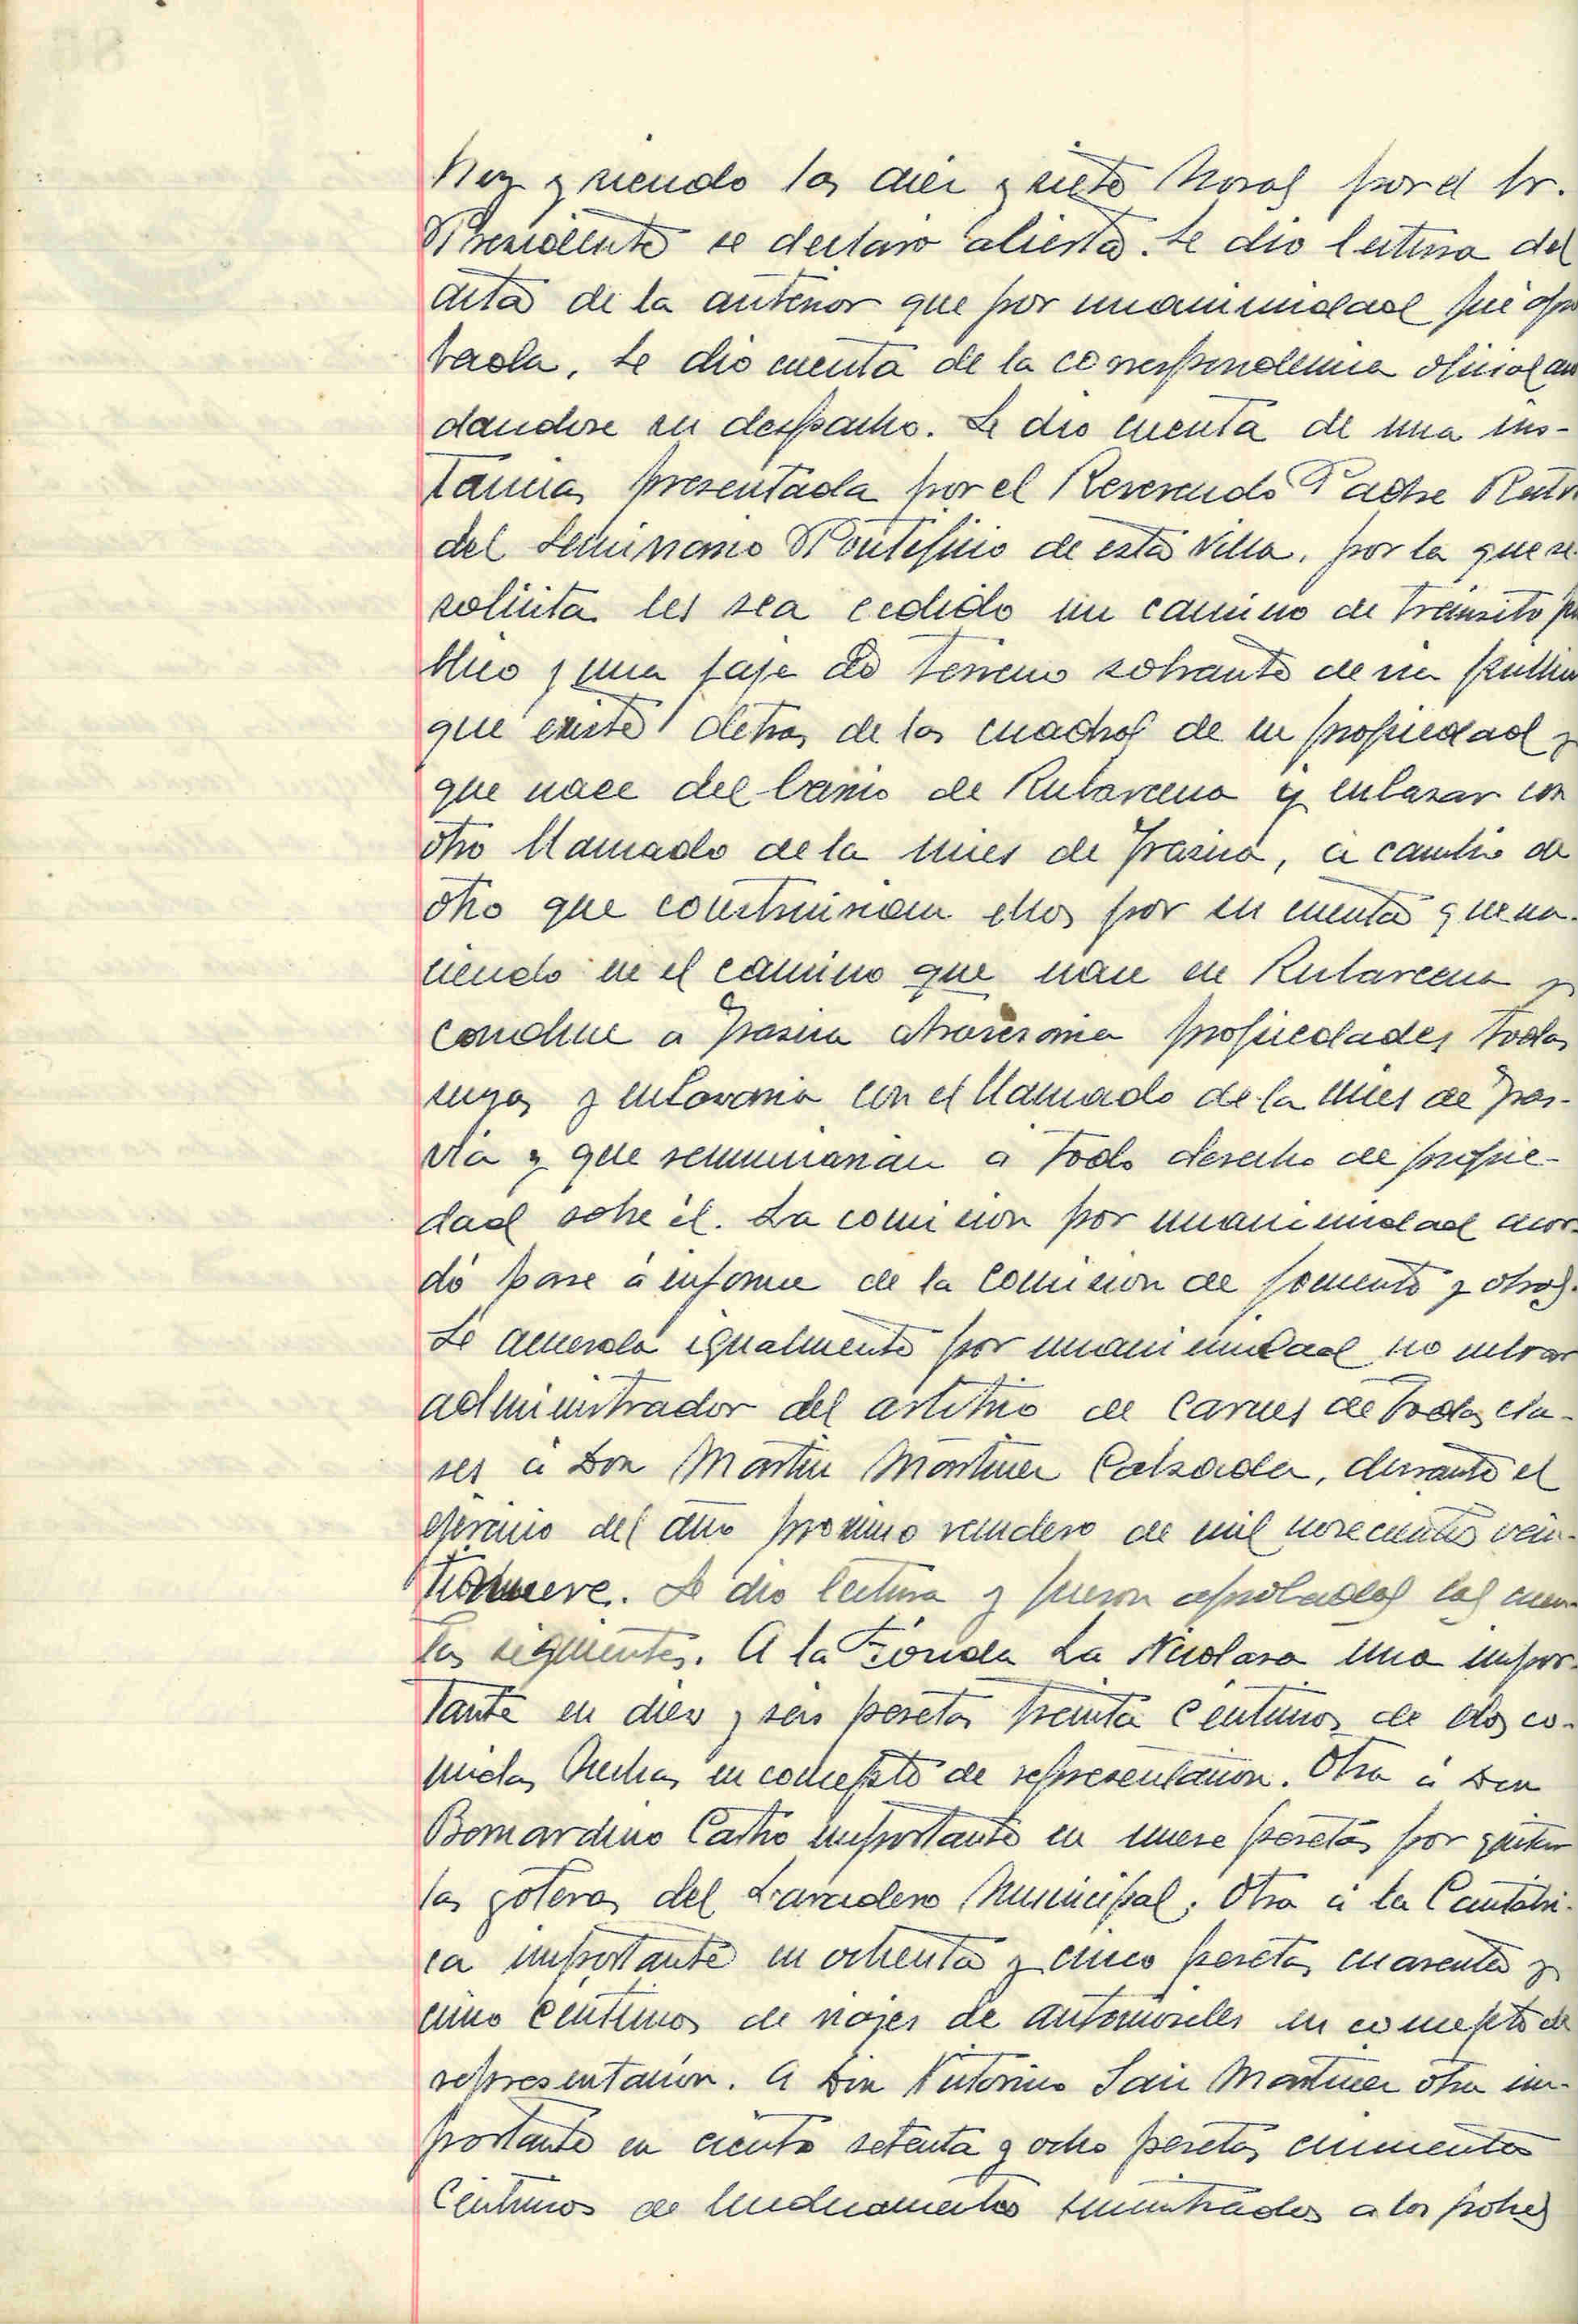 hoy y siendo las diez y siete horas por el Sr.
Presidente se declaro abierta. Se dio lectura del
acta de la anterior que por unanimidad fué apro
bada. Se dio cuenta de la correspondencia oficial an
dandose su despacho. Se dio cuenta de una ins-
tancia presentada por el Reverendo Padre Rector
del Seminario Pontificio de esta Villa, por la que se
solicita les sea cedido un camino de tránsito pu
blico y una faja de terreno sobrante de via publica
que existe detras de las cuadras de su propiedad y
que nace del barrio de Rubarcena y enlazar con
otro llamado de la mies de , a cambio de
otro que construirian ellos por su cuenta que na-
ciendo en el camino que nace en Rubarcena y
conduce a atravesaria propiedades todas
suyas y enlazaria con el llamado de la mies de
y que renunciarian a todo derecho de propie-
dad sobre él. La comision por unanimidad acor-
dó pase á informe de la Comision de fomento y obras.
Se acuerda igualmente por unanimidad nombrar
administrador del arbitrio de carnes de todas cla-
ses á Don Martin Martinez Calzada, durante el
ejercicio del año proximo venidero de mil novecientos vein-
tinueve. Se dio lectura y fueron aprobadas las cuen-
tas siguientes. A la Fonda La Nicolasa una impor-
tante en diez y seis pesetas treinta céntimos de dos co-
midas hechas en concepto de representacion. Otra á Don
Bernardino Castro importante en nueve pesetas por quitar
las goteras del Lavadero Municipal. Otra á la Cantábri-
ca importante en ochenta y cinco pesetas cuarenta y
cinco céntimos de viajes de automoviles en concepto de
representación. A Don Victorino San Martinez otra im-
portante en ciento setenta y ocho pesetas cincuenta
céntimos de medicamentos suministrados a los pobres